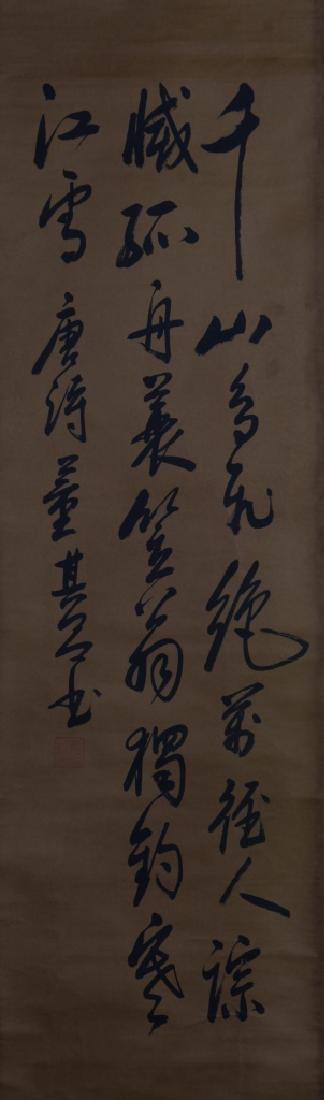 千山鳥飛絕萬徑人踪
滅孤舟蓑笠翁獨釣寒
江雪 唐詩 董其昌書